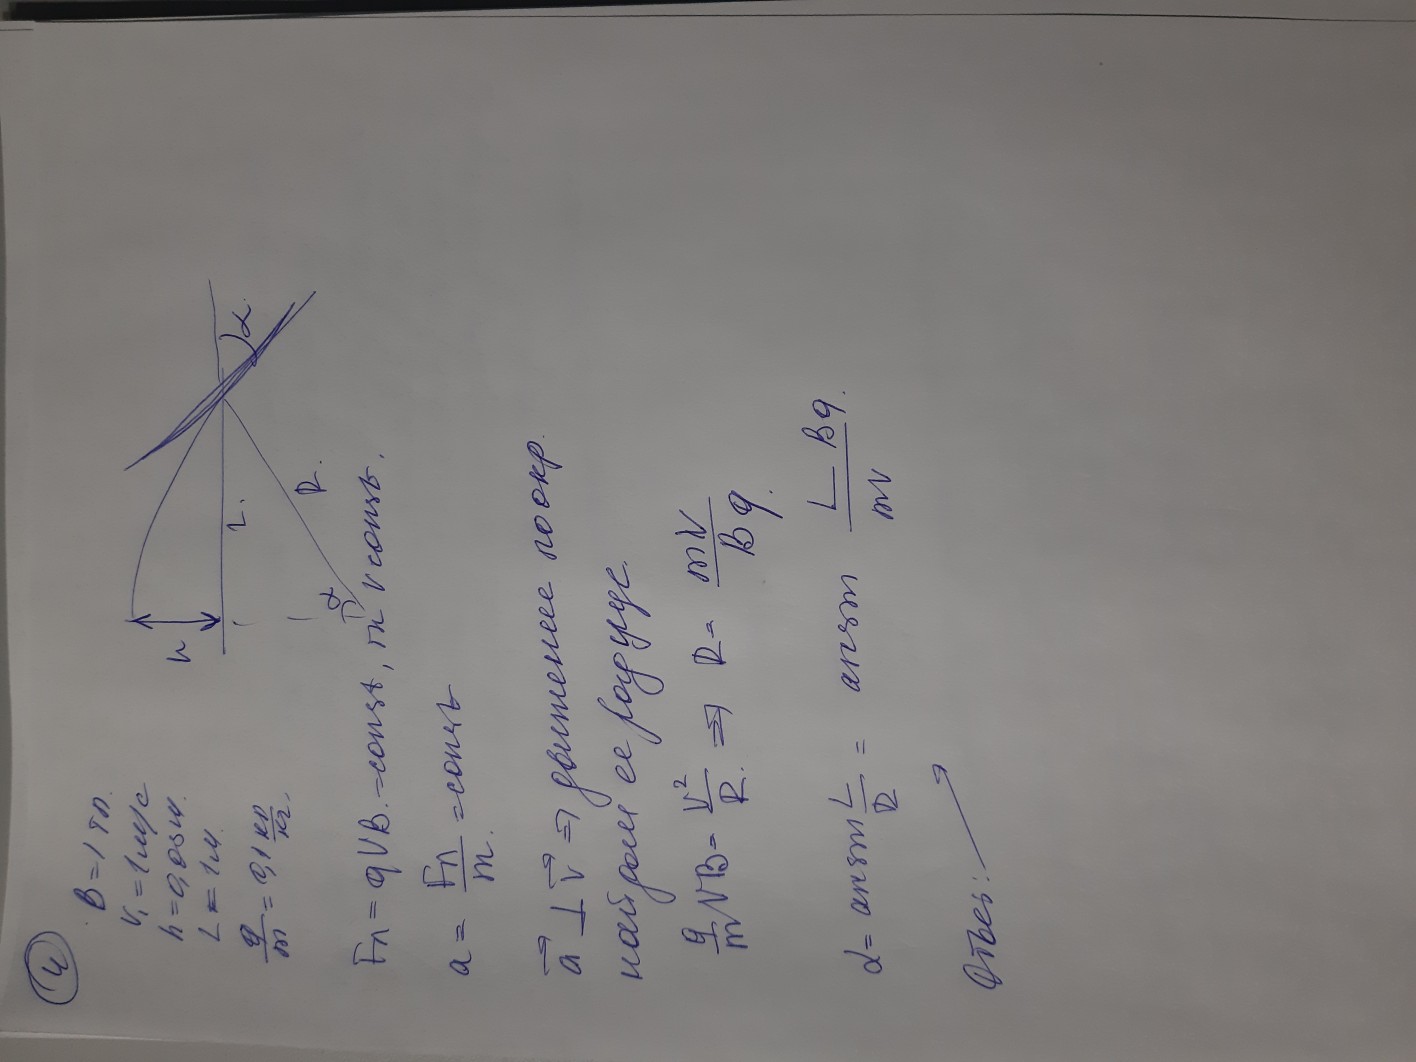 4
B = 1 Тл.
V₁ = 1 м/с
h = 0,05 м.
L = 1 м.
q/m = 0,1 кл/кг.
h
L.
R.
α
α.
Fл = qVB. = const, тк V const.
a = Fл/m. = const
a⃗ ⊥ v⃗ ⇒ движение по окр.
найдем её радиус.
q/m VB = V²/R. ⇒ R = mV/Bq.
α = arcsin L/R = arcsin L Bq./mV
Ответ: